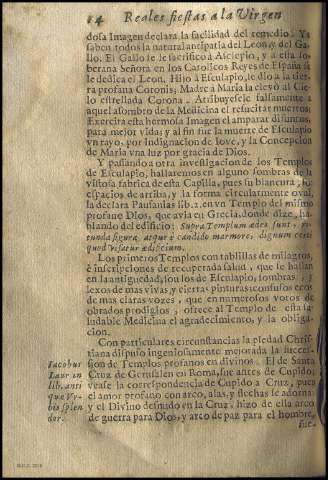 14 Reales fiestas a la Virgen
dosa Imagen declara la facilidad del remedio. Ya
saben todos la natural antipatia del Leon, y del Ga-
llo. El Gallo se le sacrificò a Asclepio, y a esta so-
berana Señora en los Catolicos Reyes de España se
le dedica el Leon. Hijo à Esculapio, le diò a la tier-
ra profana Coronis; Madre a Maria la elevò al Cie-
lo estrellada Corona. Atribuyesele falsamente a
aquel asombro de la Medicina el resucitar muertos;
Exercita esta hermosa Imagen el amparar difuntos,
para mejor vida; y al fin fue la muerte de Esculapio
vn rayo, por indignacion de Iove, y la Concepcion
de Maria vna luz por gracia de Dios.
Y passando a otra investigacion de los Templos
de Esculapio, hallaremos en algunos sombras de la
vistosa fabrica de esta Capilla, pues su blancura, es-
pacios de arriba, y la forma circularmente oval,
la declara Pausanias lib. 2. en vn Templo del mismo
profano Dios, que avia en Grecia, donde dize, ha-
blando del edificio: Supra Templum ædes sunt, ro-
tunda figura, atque è candido marmore, dignum certè
quod visatur ædificium.
Los primeros Templos con tablillas de milagros,
è inscripciones de recuperada salud, que se hallan
en la antiguedad, son los de Esculapio, sombras, y
lexos de mas vivas y ciertas pinturas: confusos ecos
de mas claras vozes, que en numerosos votos de
obrados prodigios, ofrece al Templo de esta sa-
ludable Medicina el agradecimiento, y la obliga-
cion.
Con particulares circunstancias la piedad Chris-
tiana dispuso ingeniosamente mejorada la succes-
sion de Templos profanos en divinos. El de Santa
Cruz de Gerusalen en Roma, fue antes de Cupido;
vease la correspondencia de Cupido a Cruz, pues
el amor profano con arco, alas, y flechas se adorna
y el Divino desnudo en la Cruz, hizo de ella arco
de guerra para Dios, y arco de paz para el hombre,
fue.
Iacobus
Laur. in
lib. anti
quæ Vr-
bis splen
dor.